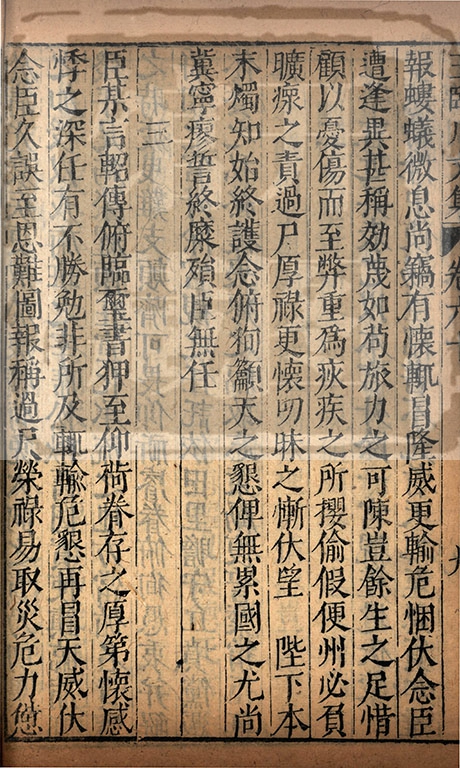 報螻蟻微息尚竊有懷輒冒隆威更輸危悃伏念臣
遭逢異甚稱効蔑如茍旅力之可陳豈餘生之足惜
顧以憂傷而至弊重爲疢疾之所攖偷假便州必負
曠瘝之責過尸厚祿更懷叨昧之慚伏望 陛下本
末燭知始終護念俯徇籲天之懇俾無累國之尤尚
冀寧瘳誓終糜殞臣無任
三
臣某言軺傳俯臨璽書狎至仰荷眷存之厚第懷感
悸之深任有不勝勉非所及輒輸危懇再冒天威伏
念臣久誤至恩難圖報稱過尸榮祿易取災危力憊